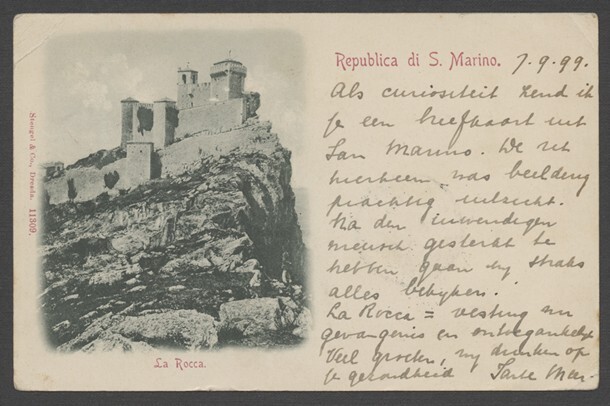 Republica di S. Marino. 7.9.99.
Als curiositeit zend ik
je een briefkaart uit
San Marino. De rit
hierheen was beeldig
prachtig uitzicht.
Na den inwendigen
mensch gesterkt te
hebben gaan wij straks
alles bekijken.
La Rocca = vesting nu
gevangenis en ontoegankelijk
Veel groeten, wij drinken op
je gezondheid
Stengel & Co., Dresda. 11309.
La Rocca.